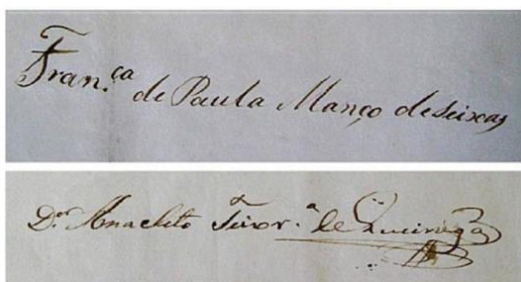 Fran.ca de Paula Manço de Seixas
D.or Anacleto Teixr.a de Queiroga